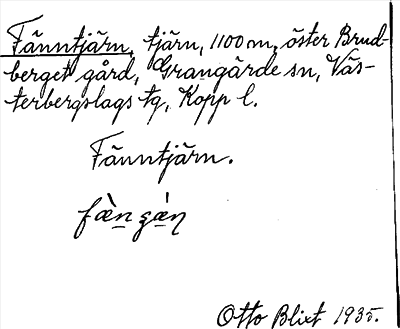 Fänntjärn, tjärn, 1100 m, öster Brud-
berget gård, Grangärde sn, Väs-
terbergslags tg, Kopp l.
Fänntjärn.
fæ̀n ʒæ̀ɳ
Otto Blixt 1935.